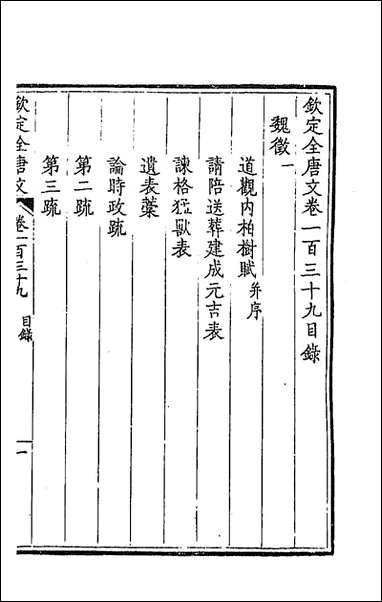 欽定全唐文卷一百三十九目錄
魏徵一
道觀內柏樹賦并序
請陪送葬建成元吉表
諫格猛獸表
遺表藁
論時政疏
第二疏
第三疏
欽定全唐文 卷一百三十九 目錄 一